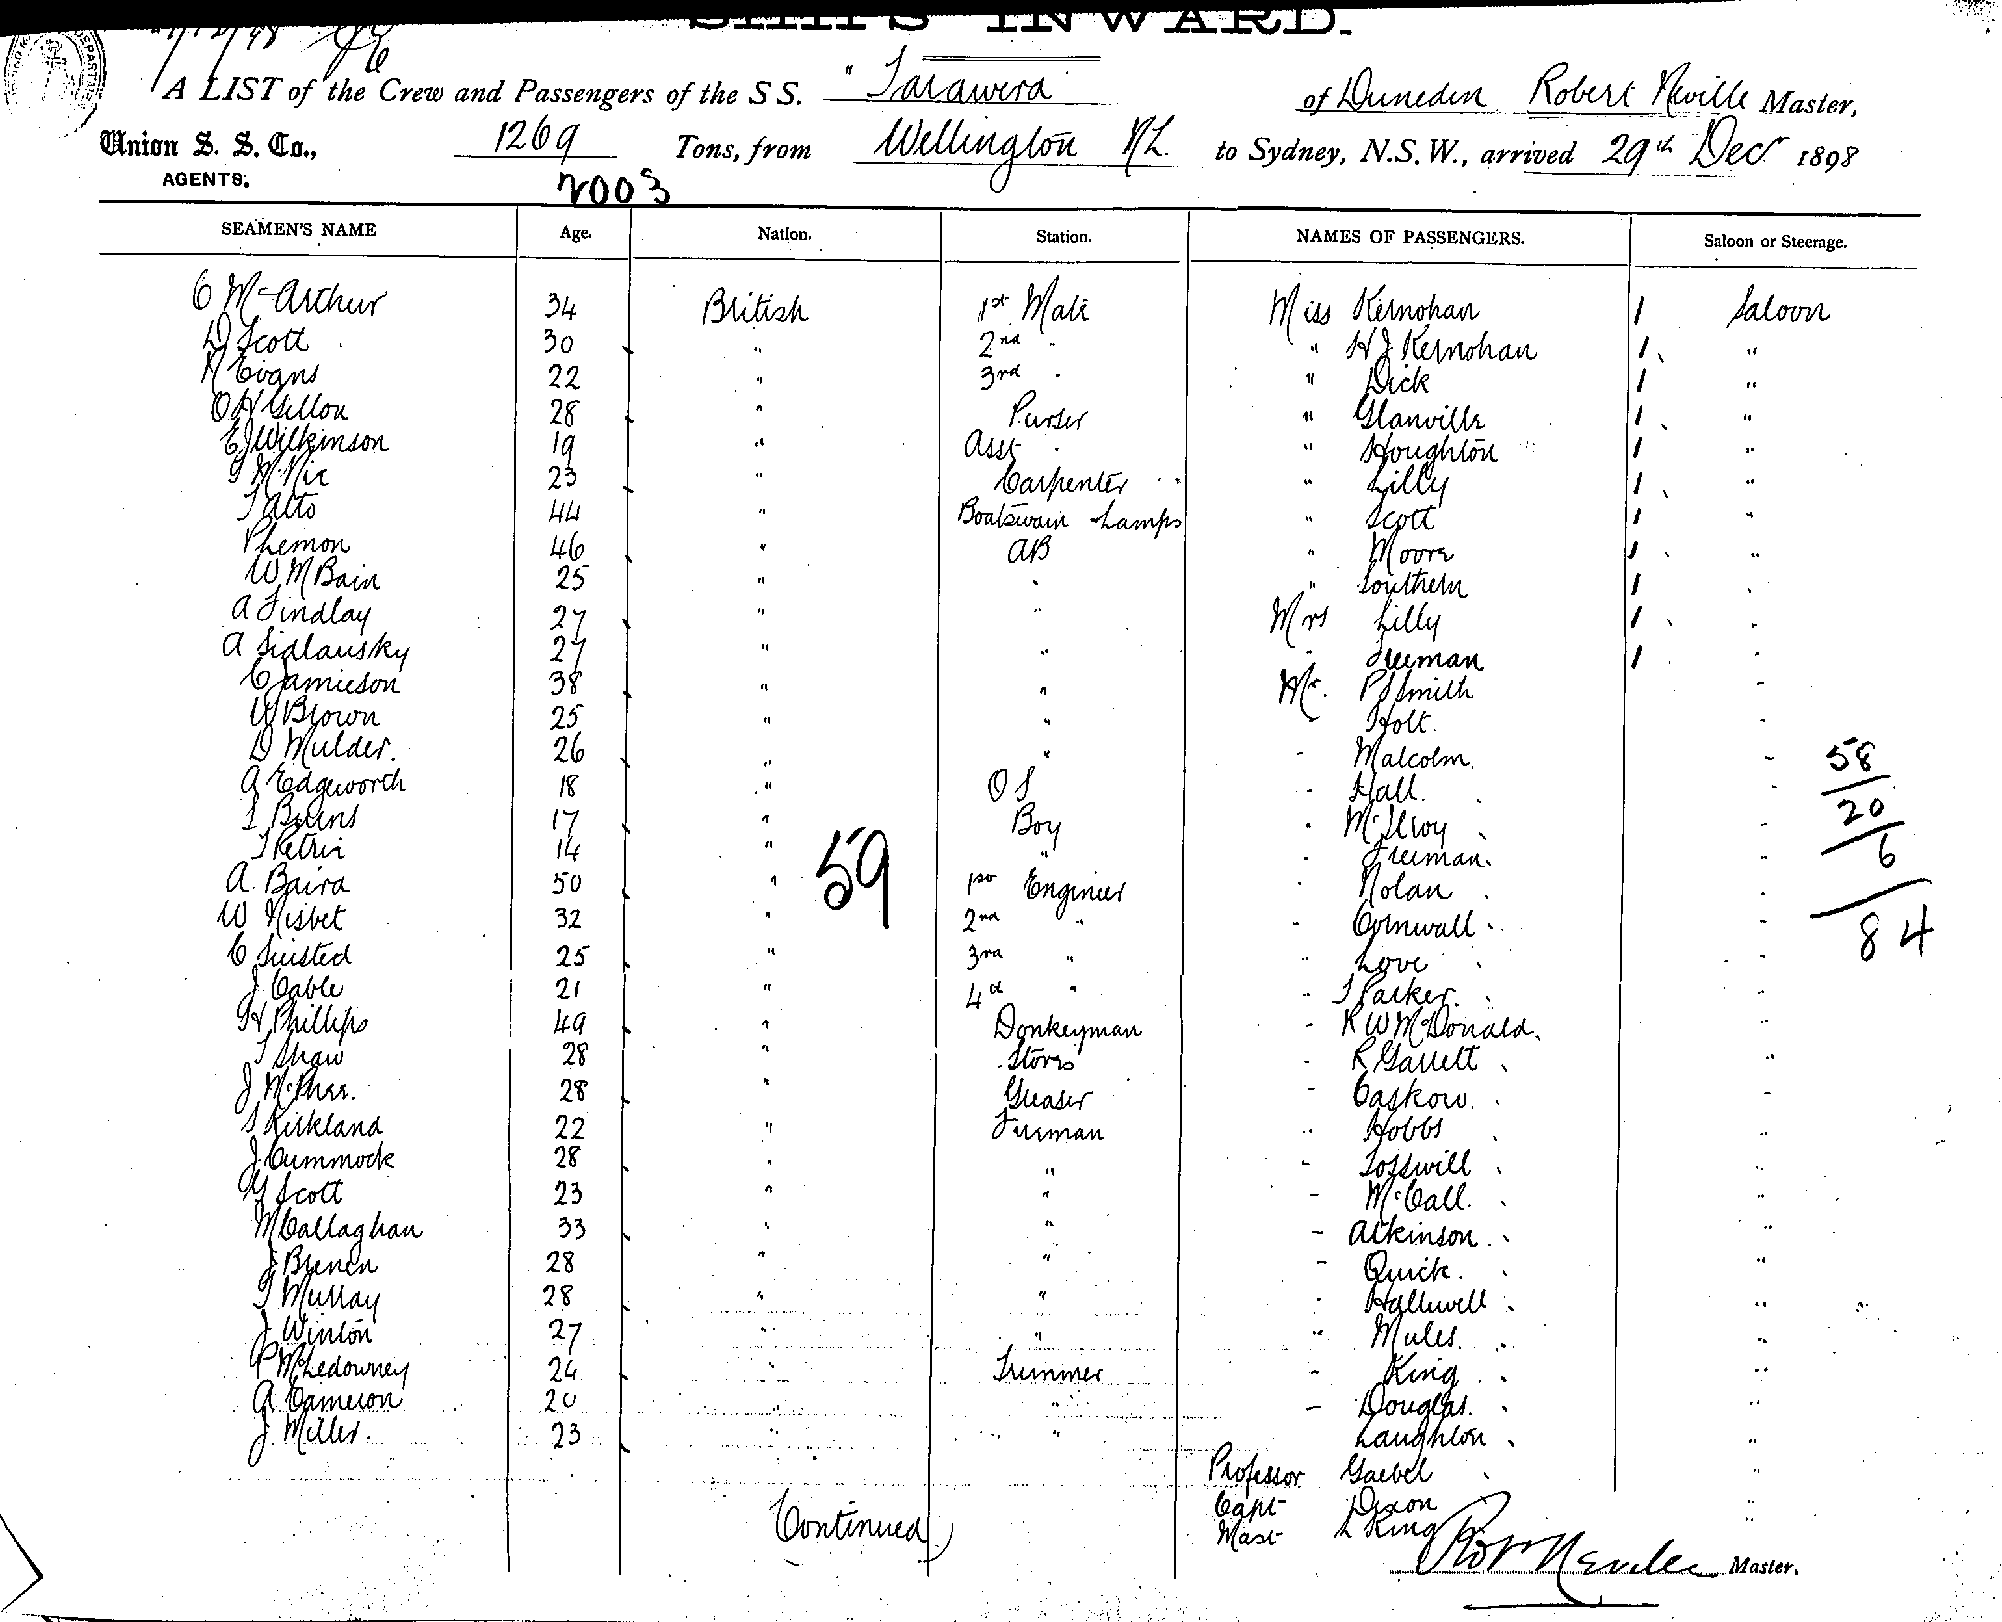 SHIPS INWARD.
A LIST of the Crew and Passengers of the SS. "Tarawera of Dunedin Robert Neville Master,
Union S. S. Co., 1269 Tons, from Wellington NZ. to Sydney, N.S.W., arrived 29th Dec 1898
AGENTS.
2003
SEAMEN'S NAME Age. Nation. Station. NAMES OF PASSENGERS. Saloon or Steerage.
C McArthur 34 British 1st Mate Miss Kernohan 1 Saloon
D Scott 30 " 2nd " " H J Kernohan 1 "
R Evans 22 " 3rd " " Dick 1 "
O H Gillon 28 " Purser " Glanville 1 "
E J Wilkinson 19 " Asst " " Houghton 1 "
23 " Carpenter " Lilly 1 "
T Atto 44 " Boatswain Lamps " Scott 1 "
46 " AB " Moore 1 "
W McBain 25 " " " Southern 1 "
A Findlay 27 " " Mrs Lilly 1 "
A Sidlausky 27 " " " Freeman 1 "
C Jamieson 38 " " Mr. P S Smith "
W Brown 25 " " Holt. "
D Mulder. 26 " " " Malcolm. "
A Edgeworth 18 " OS " Hall. "
Burns 17 " Boy " McIlroy "
T Petrie 14 " " " Freeman. "
A. Baird 50 " 1st Engineer " Nolan "
W Nisbet 32 " 2nd " " Cornwall "
C Suisted 25 " 3rd " " Love "
J Cable 21 " 4th " " T Parker. "
H Phillips 49 " Donkeyman " R W McDonald. "
T Shaw 28 " Stores " R Garrett "
J McPhee. 28 " Greaser " Caskow. "
Kirkland 22 " Fireman " Hobbs "
J Cummock 28 " " " Tosswill "
G Scott 23 " " " McCall. "
M Callaghan 33 " " " Atkinson. "
J Brenen 28 " " " Quick. "
T Murray 28 " " " Halliwell "
J Winton 27 " " " Mules. "
P McLedowney 24 " Trimmer " King "
A Cameron 20 " " " Douglas. "
J. Miller. 23 " " Laughton "
Professor Gaebel "
Capt Dixon "
Mast L King "
59
58
20
6
84
Continued
Robt Neville Master.